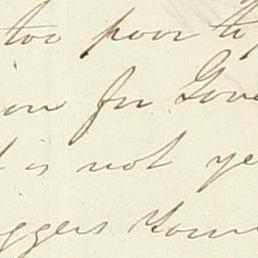 too poor to
for Gove
is not ye
ggers Your